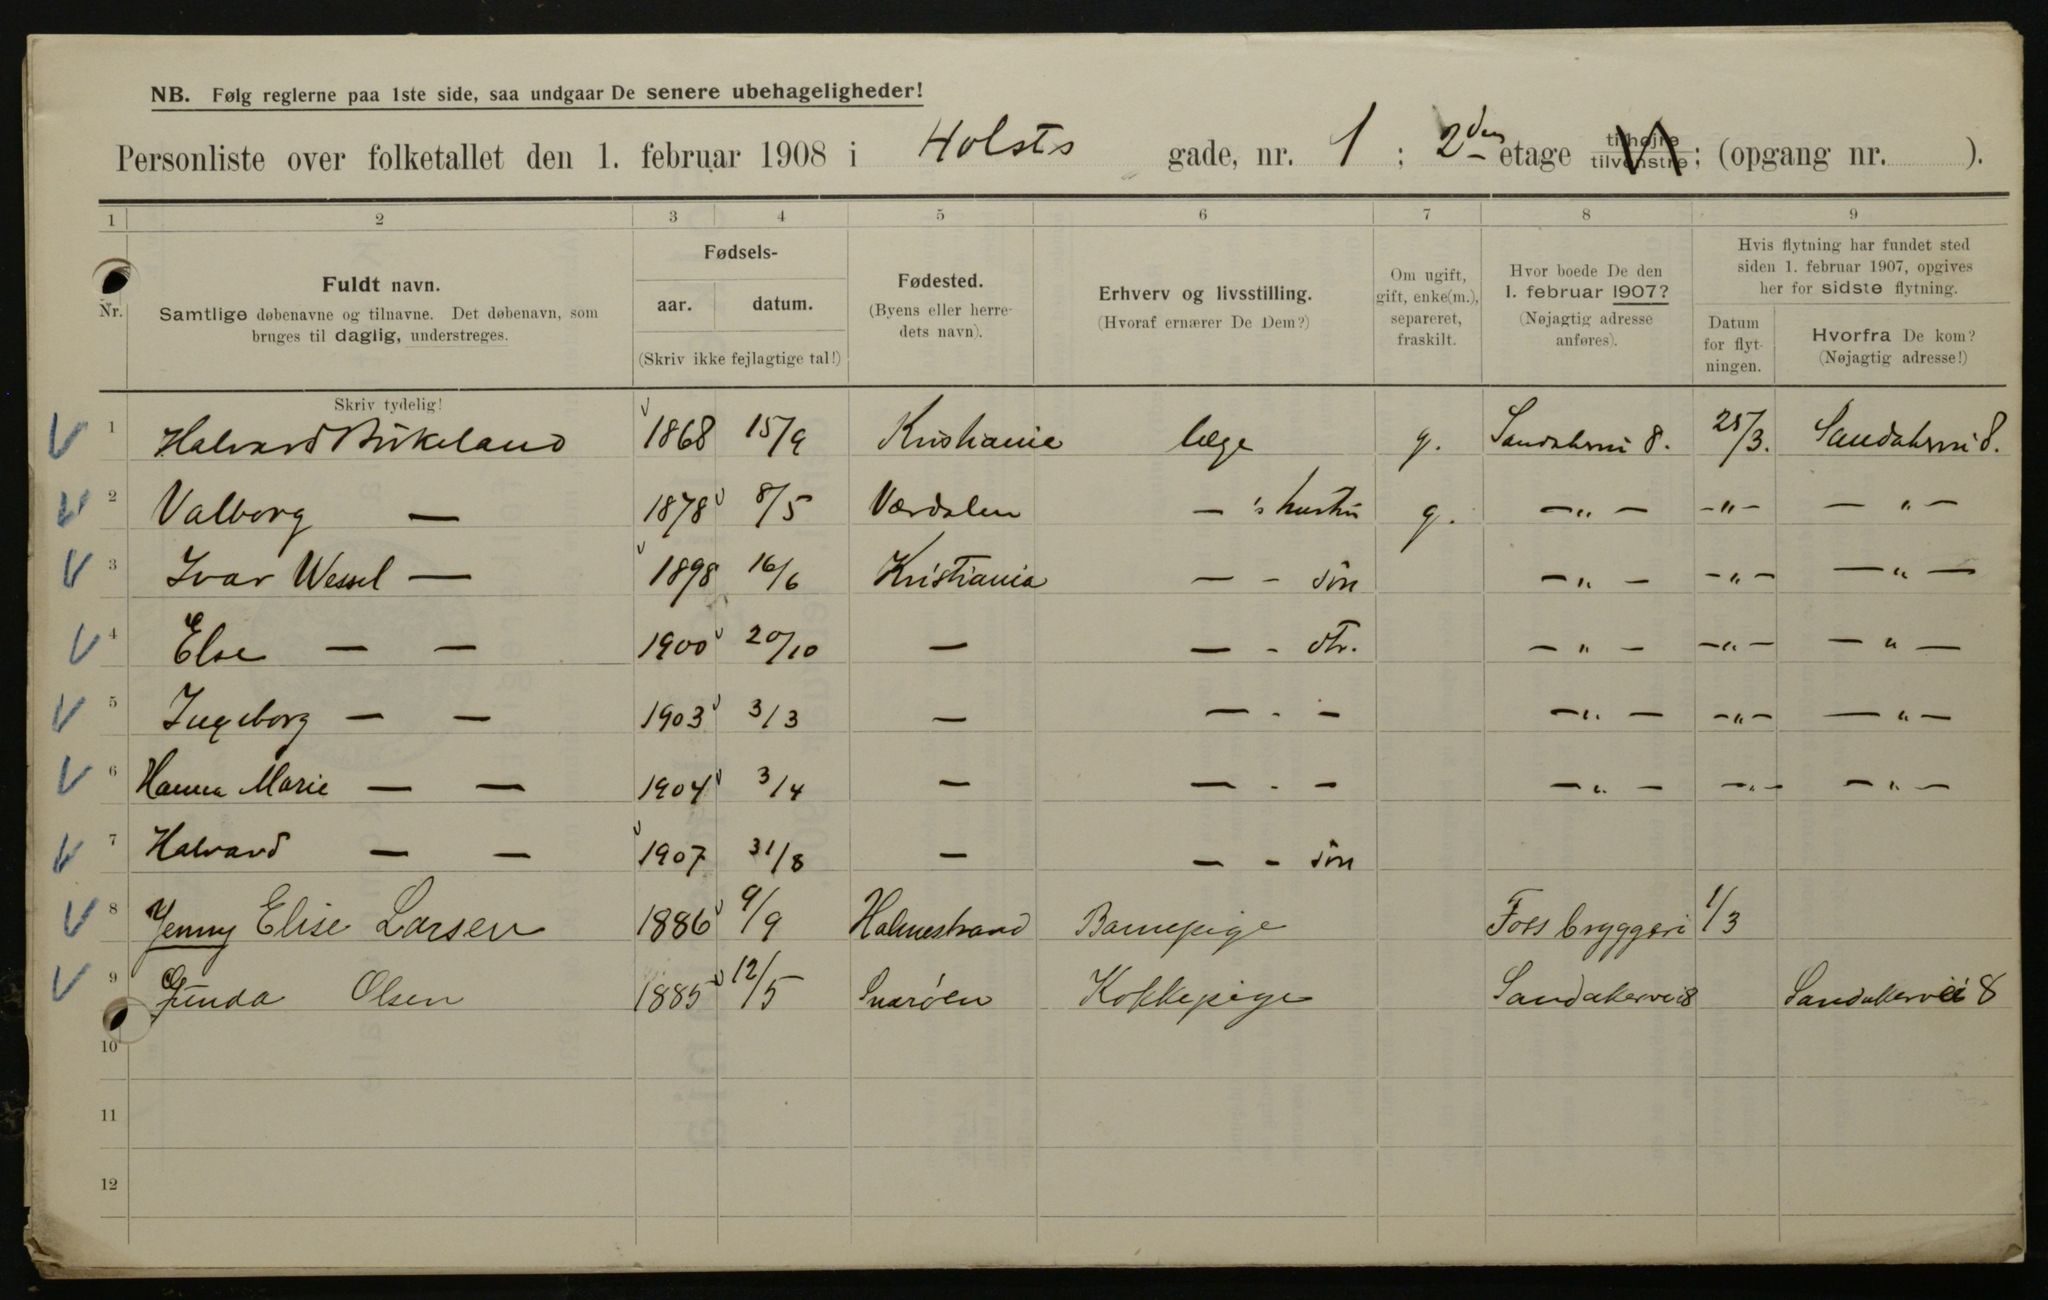 NB. Følg reglerne paa 1ste side, saa undgaar De senere ubehageligheder!
Personliste over folketallet den 1. februar 1908 i Holsts gade, nr. 1 ; 2den etage tilhøjre tilvenstre ; (opgang nr. ).
1 2 3 4 5 6 7 8 9
Nr.
Fuldt navn.
Samtlige døbenavne og tilnavne. Det døbenavn, som
bruges til daglig, understreges.
Fødsels-
aar. datum.
(Skriv ikke fejlagtige tal!)
Fødested.
(Byens eller herre-
dets navn).
Erhverv og livsstilling.
(Hvoraf ernærer De Dem?)
Om ugift,
gift, enke(m.),
separeret,
fraskilt.
Hvor boede De den
1. februar 1907?
(Nøjagtig adresse
anføres).
Hvis flytning har fundet sted
siden 1. februar 1907, opgives
her for sidste flytning.
Datum
for flyt-
ningen.
Hvorfra De kom?
(Nøjagtig adresse!)
Skriv tydelig!
1 Halvard Birkeland 1868 15/9 Kristiania læge g. Sandakervei 8. 25/3. Sandakervei 8.
2 Valborg — 1878 8/5 Værdalen — 's hustru g. — " — — " — — " —
3 Ivar Wessel — 1898 16/6 Kristiania — - søn — " — — " — — " —
4 Else — — 1900 20/10 — — - dtr. — " — — " — — " —
5 Ingeborg — — 1903 3/3 — — - — — " — — " — — " —
6 Hanna Marie — — 1904 3/4 — — - — — " — — " — — " —
7 Halvard — — 1907 31/8 — — - søn
8 Jenny Elise Larsen 1886 9/9 Holmestrand Barnepige Foss bryggeri 1/3
9 Gunda Olsen 1885 12/5 Snarøen Kokkepige Sandakervei 8 Sandakervei 8
10
11
12